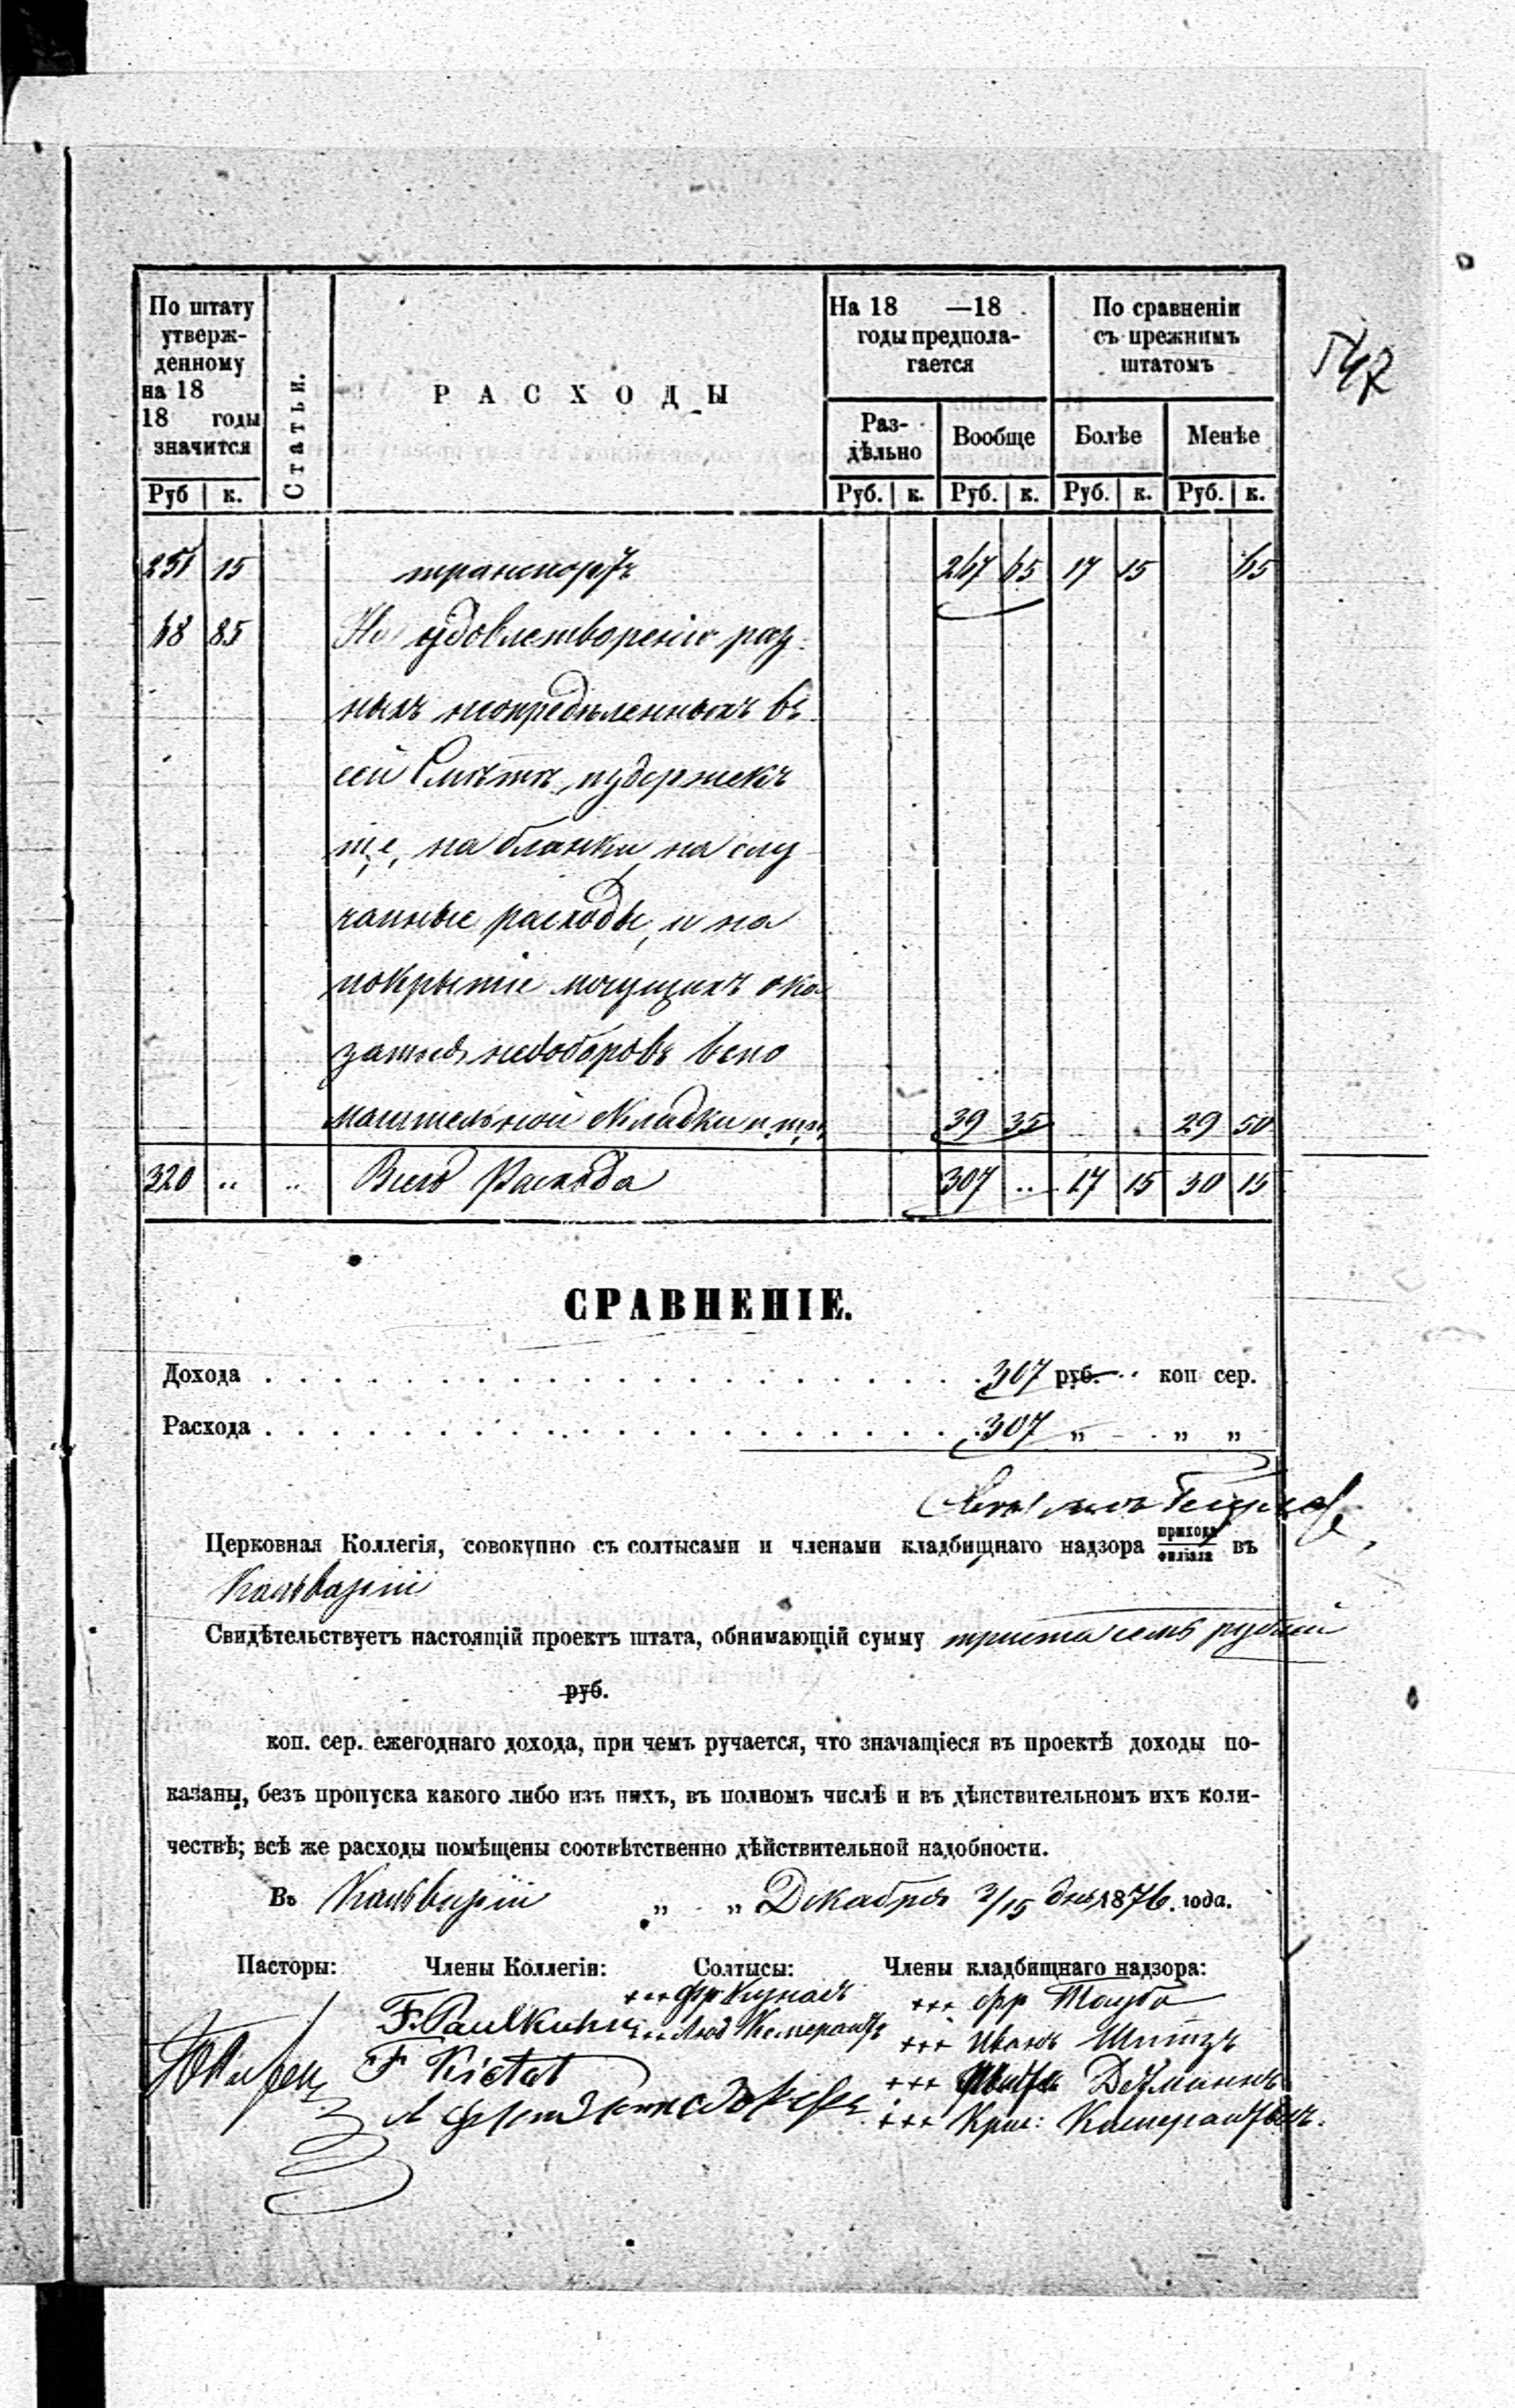 542
По штату утверж- денному на 18 18 годы значится
Статьи.
РАСХОДЫ
На 18 —18 годы предпола- гается
По сравненіи съ прежнимъ штатомъ
Раз- дѣльно
Вообще
Болѣе
Менѣе
Руб к. Руб. к. Руб. к. Руб. к. Руб. к.
251 15 транспортъ 267 65 17 15 65
68 85 На удовлетвореніе раз-
ныхъ неопредѣленныхъ въ
сей Смѣтѣ издержекъ
т. е. на бланки, на слу
чайные расходы, и на
покрытіе могущихъ ока
заться недоборовъ вспо
магательной складки и т. п. 39 35 29 50
320 „ „ Всего Расхода 307 „ 17 15 30 15
СРАВНЕНІЕ.
Дохода . . . 307 руб. „ коп сер.
Расхода . . . 307 „ — „ „
Церковная Коллегія, совокупно съ солтысами и членами кладбищнаго надзора прихода филіала въ
Кальваріи
Свидѣтельствуетъ настоящій проектъ штата, обнимающій сумму триста семь рублей
руб.
коп. сер. ежегоднаго дохода, при чемъ ручается, что значащіеся въ проектѣ доходы по-
казаны, безъ пропуска какого либо изъ нихъ, въ полномъ числѣ и въ дѣйствительномъ ихъ коли-
чествѣ; всѣ же расходы помѣщены соотвѣтственно дѣйствительной надобности.
Въ Кальваріи „ „ Декабря 3/15 дня 1876. года.
Пасторы: Члены Коллегіи: Солтысы: Члены кладбищнаго надзора:
+++ Фр
F. Paulkuhn +++ Люд Кемерантъ
F Kietat
+++ Фр Тауба
+++ Иванъ Шмитъ
+++ Дейманнъ
+++ Крис: Камерант